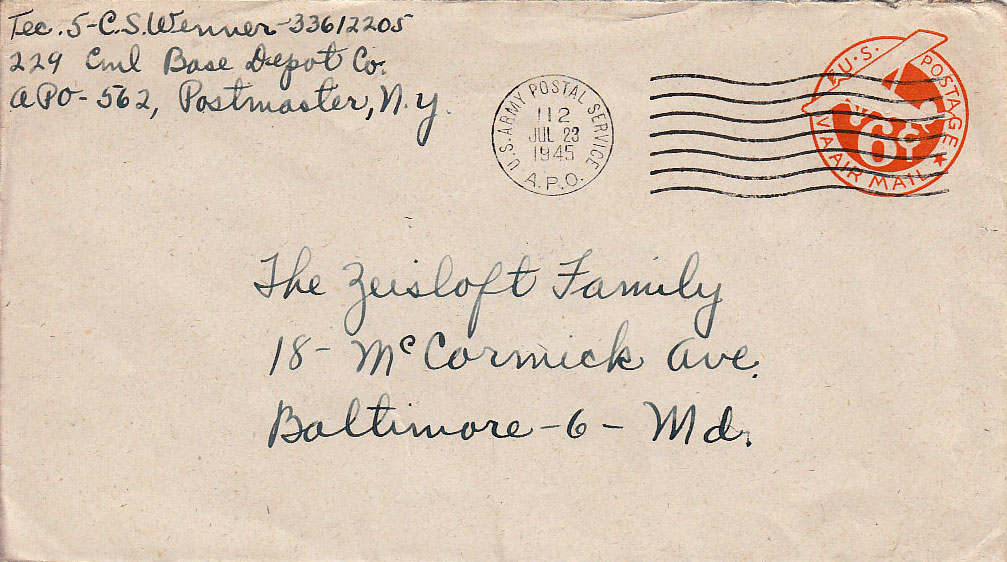 Tec. 5-C.S. Wenner-33612205
229 Cml Base Depot Co.
APO-562, Postmaster, N.y.
U.S. ARMY POSTAL SERVICE
112
JUL 23
1945
A.P.O.
U.S. POSTAGE
6¢
VIA AIR MAIL
The Zeisloft Family
18- McCormick Ave.
Baltimore-6- Md.